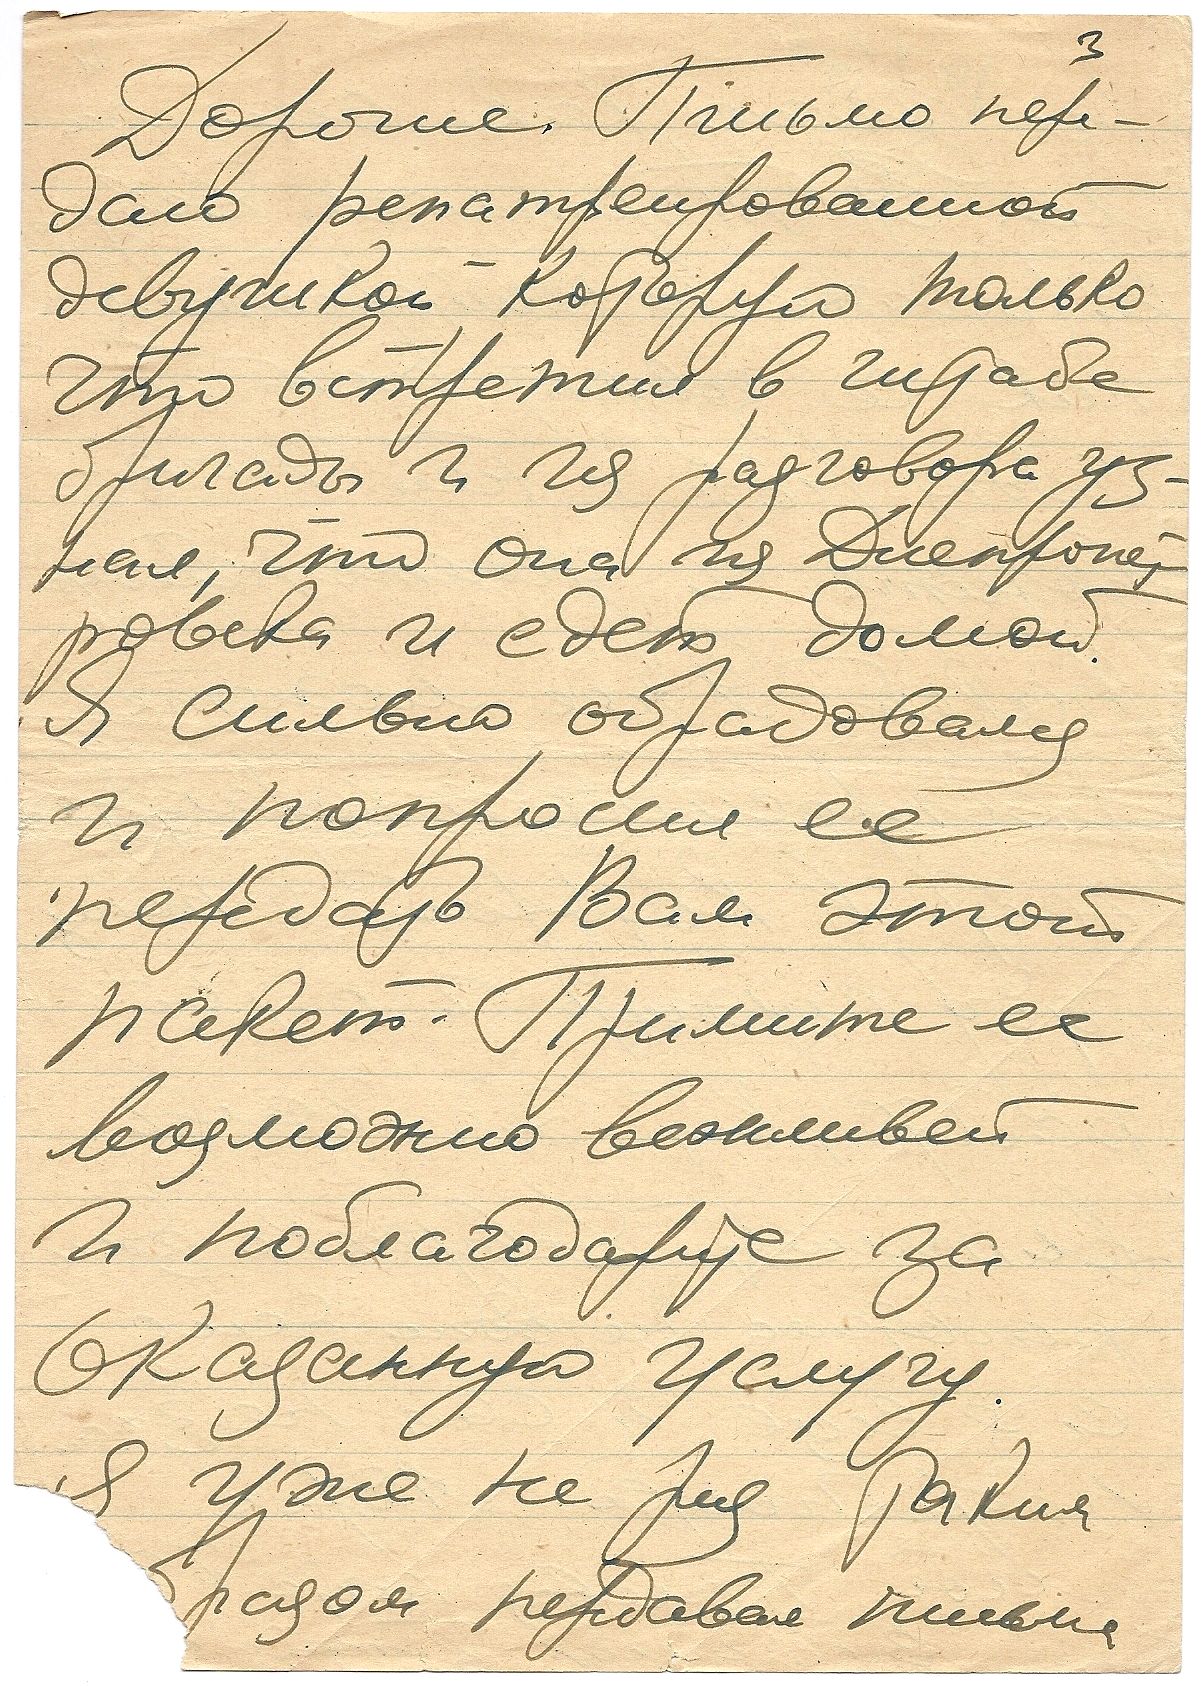 3
Дорогие. Письмо пере-
даю репатреированной
девушкой которую только
что встретил в штабе
бригады и из разговора уз-
нал, что она из Днепропет-
ровска и едет домой.
Я сильно обрадовался
и попросил её
передать Вам этот
пакет. Примите ее
возможно вежливей
и поблагодарите за
оказанную услугу.
Я уже не раз таким
бразом передавал письма